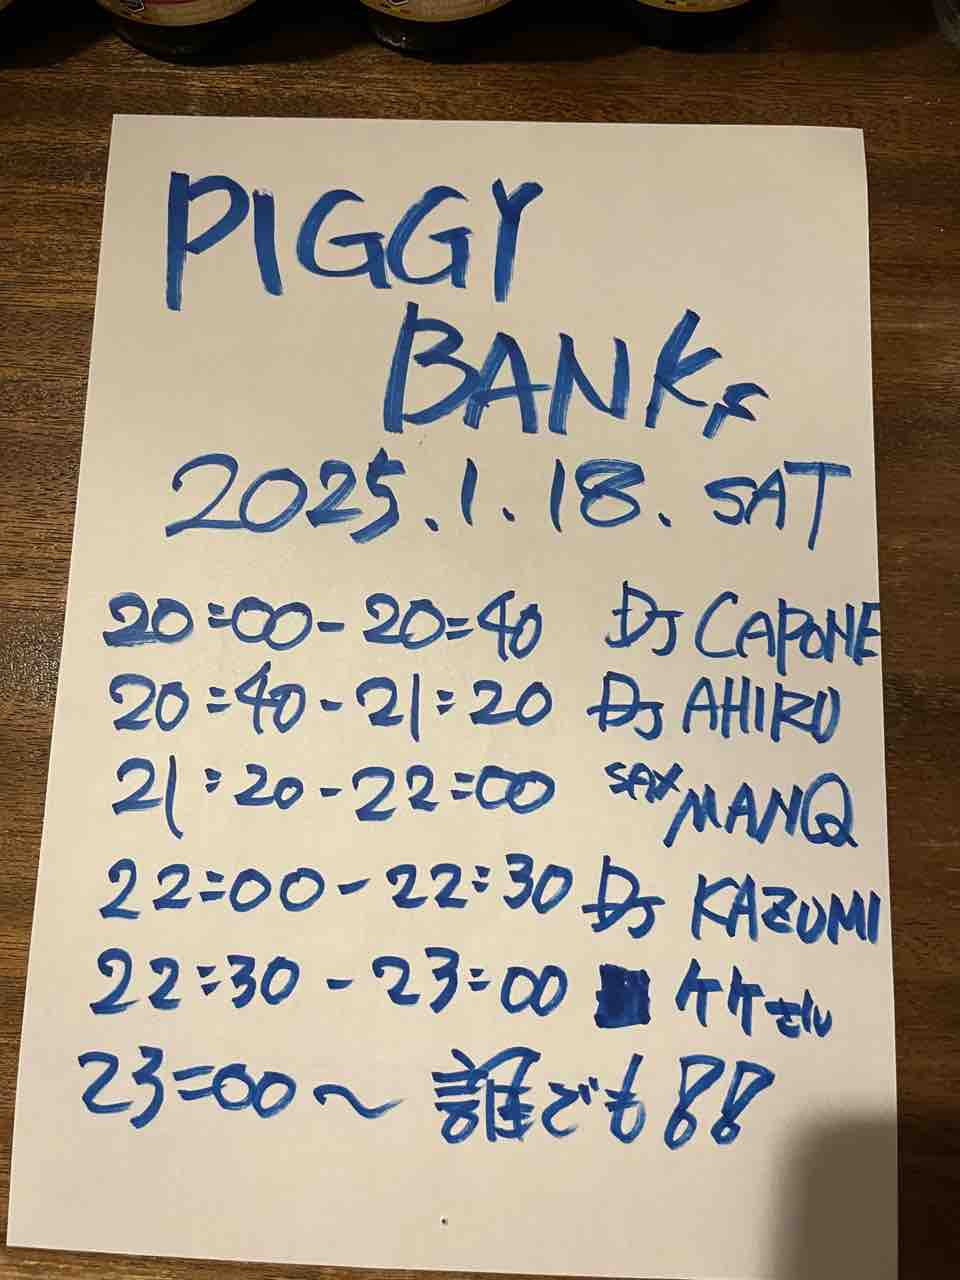 PIGGY
BANKs
2025.1.18.SAT
20:00-20:40 DJ CAPONE
20:40-21:20 DJ AHIRU
21:20-22:00 SAX MANQ
22:00-22:30 DJ KAZUMI
22:30-23:00 ケケさん
23:00〜 誰でも!!